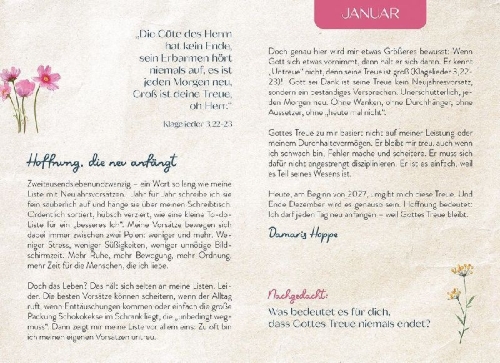 „Die Güte des Herrn
hat kein Ende,
sein Erbarmen hört
niemals auf, es ist
jeden Morgen neu.
Groß ist deine Treue,
oh Herr.“
Klagelieder 3,22-23
Hoffnung, die neu anfängt
Zweitausendsiebenundzwanzig – ein Wort so lang wie meine
Liste mit Neujahrsvorsätzen. Jahr für Jahr schreibe ich sie
fein säuberlich auf und hänge sie über meinen Schreibtisch.
Ordentlich sortiert, hübsch verziert, wie eine kleine To-do-
Liste für ein „besseres Ich“. Meine Vorsätze bewegen sich
dabei immer zwischen zwei Polen: weniger und mehr. We-
niger Stress, weniger Süßigkeiten, weniger unnötige Bild-
schirmzeit. Mehr Ruhe, mehr Bewegung, mehr Ordnung,
mehr Zeit für die Menschen, die ich liebe.
Doch das Leben? Das hält sich selten an meine Listen. Lei-
der. Die besten Vorsätze können scheitern, wenn der Alltag
ruft, wenn Enttäuschungen kommen oder einfach die große
Packung Schokokekse im Schrank liegt, die „unbedingt weg-
muss“. Dann zeigt mir meine Liste vor allem eins: Zu oft bin
ich meinen eigenen Vorsätzen untreu.
JANUAR
Doch genau hier wird mir etwas Größeres bewusst: Wenn
Gott sich etwas vornimmt, dann hält er sich daran. Er kennt
„Untreue“ nicht, denn seine Treue ist groß (Klagelieder 3,22-
23)! Gott sei Dank ist seine Treue kein Neujahrsvorsatz,
sondern ein beständiges Versprechen. Unerschütterlich, je-
den Morgen neu. Ohne Wanken, ohne Durchhänger, ohne
Aussetzer, ohne „heute mal nicht“.
Gottes Treue zu mir basiert nicht auf meiner Leistung oder
meinem Durchhaltevermögen. Er bleibt mir treu, auch wenn
ich schwach bin, Fehler mache und scheitere. Er muss sich
dafür nicht angestrengt disziplinieren. Er ist es einfach, weil
es Teil seines Wesens ist.
Heute, am Beginn von 2027, umgibt mich diese Treue. Und
Ende Dezember wird es genauso sein. Hoffnung bedeutet:
Ich darf jeden Tag neu anfangen – weil Gottes Treue bleibt.
Damaris Hoppe
Nachgedacht:
Was bedeutet es für dich,
dass Gottes Treue niemals endet?